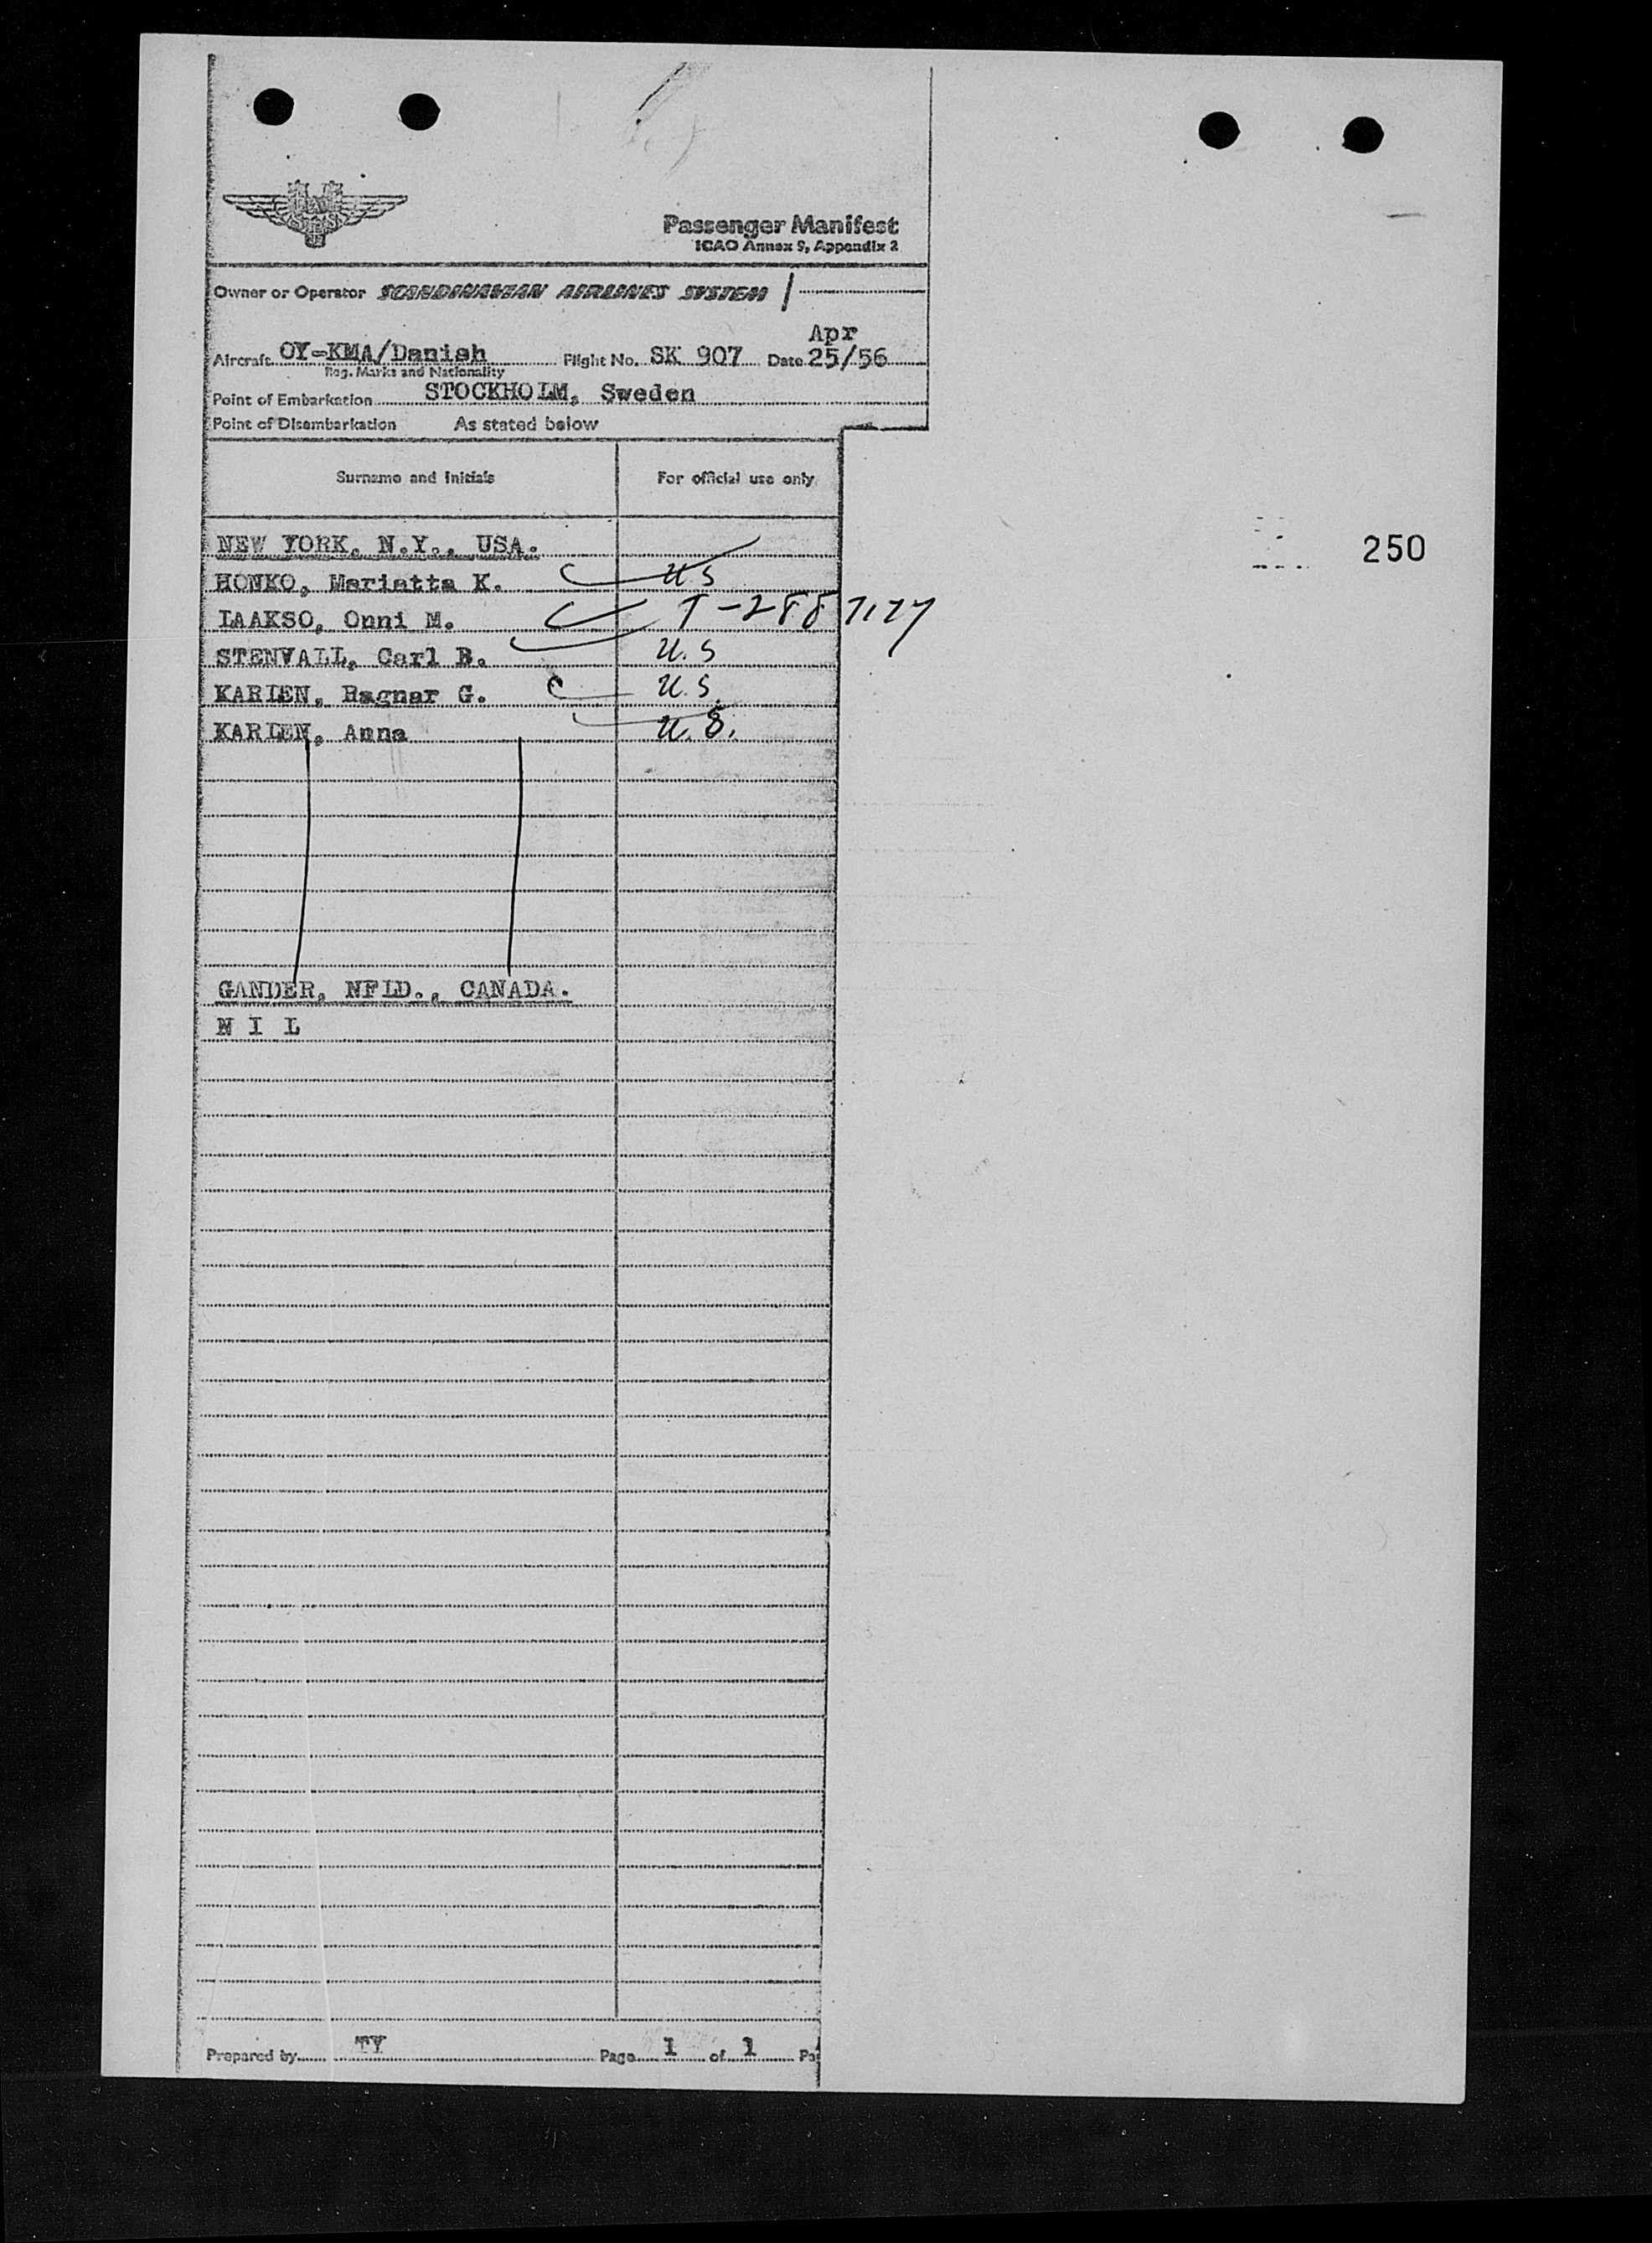 Passenger Manifest
ICAO Annex 9, Appendix 2
Owner or Operator SCANDINAVIAN AIRLINES SYSTEM
Apr
Aircraft OY-KMA/Danish Flight No. SK 907 Date 25/56
Reg. Marks and Nationality
Point of Embarkation STOCKHOLM, Sweden
Point of Disembarkation As stated below
Surname and Initials For official use only
NEW YORK, N.Y., USA.
250
HONKO, Mariatta K. US
LAAKSO, Onni M. T-288
STENVALL, Carl B. U.S
KARLEN, Ragnar G. U.S.
KARLEN, Anna U.S.
GANDER, NFLD., CANADA.
N I L
Prepared by TY Page 1 of 1 Pa